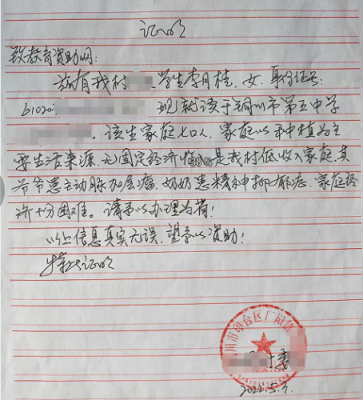 证明
致教育资助网:
兹有我村 学生李月桂,女,身份证号:
61020 现就读于铜川市第五中学
该生家庭七口人,家庭以种植为主
要生活来源,无固定经济 是我村低收入家庭,其
爷爷患主动脉加层瘤,奶奶患精神抑郁症,家庭经
济十分困难。请予以办理为荷!
以上信息真实无误,望予以资助!
特此证明
川市印台区广阳镇
村委
2022.5.7.